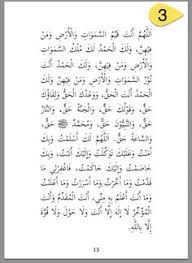 3
اَللّٰهُمَّ أَنْتَ قَيِّمُ السَّمَوَاتِ وَالْأَرْضِ وَمَنْ
فِيْهِنَّ، وَلَكَ الْحَمْدُ لَكَ مُلْكُ السَّمَوَاتِ
وَالْأَرْضِ وَمَنْ فِيْهِنَّ، وَلَكَ الْحَمْدُ أَنْتَ
نُوْرُ السَّمَوَاتِ وَالْأَرْضِ وَمَنْ فِيْهِنَّ وَلَكَ
الْحَمْدُ أَنْتَ الْحَقُّ، وَوَعْدُكَ الْحَقُّ وَلِقَاؤُكَ
حَقٌّ، وَقَوْلُكَ حَقٌّ، وَالْجَنَّةُ حَقٌّ، وَالنَّارُ
حَقٌّ، وَالنَّبِيُّوْنَ حَقٌّ، وَمُحَمَّدٌ ﷺ حَقٌّ،
وَالسَّاعَةُ حَقٌّ. اَللّٰهُمَّ لَكَ أَسْلَمْتُ، وَبِكَ
آمَنْتُ وَعَلَيْكَ تَوَكَّلْتُ وَإِلَيْكَ أَنَبْتُ، وَبِكَ
خَاصَمْتُ وَإِلَيْكَ حَاكَمْتُ، فَاغْفِرْلِيْ مَا
قَدَّمْتُ وَمَا أَخَّرْتُ وَمَا أَسْرَرْتُ وَمَا أَعْلَنْتُ
وَمَا أَنْتَ أَعْلَمُ بِهِ مِنِّيْ. أَنْتَ الْمُقَدِّمُ وَأَنْتَ
الْمُؤَخِّرُ لَا إِلَهَ إِلَّا أَنْتَ وَلَا حَوْلَ وَلَا قُوَّةَ
إِلَّا بِاللّٰهِ.
13